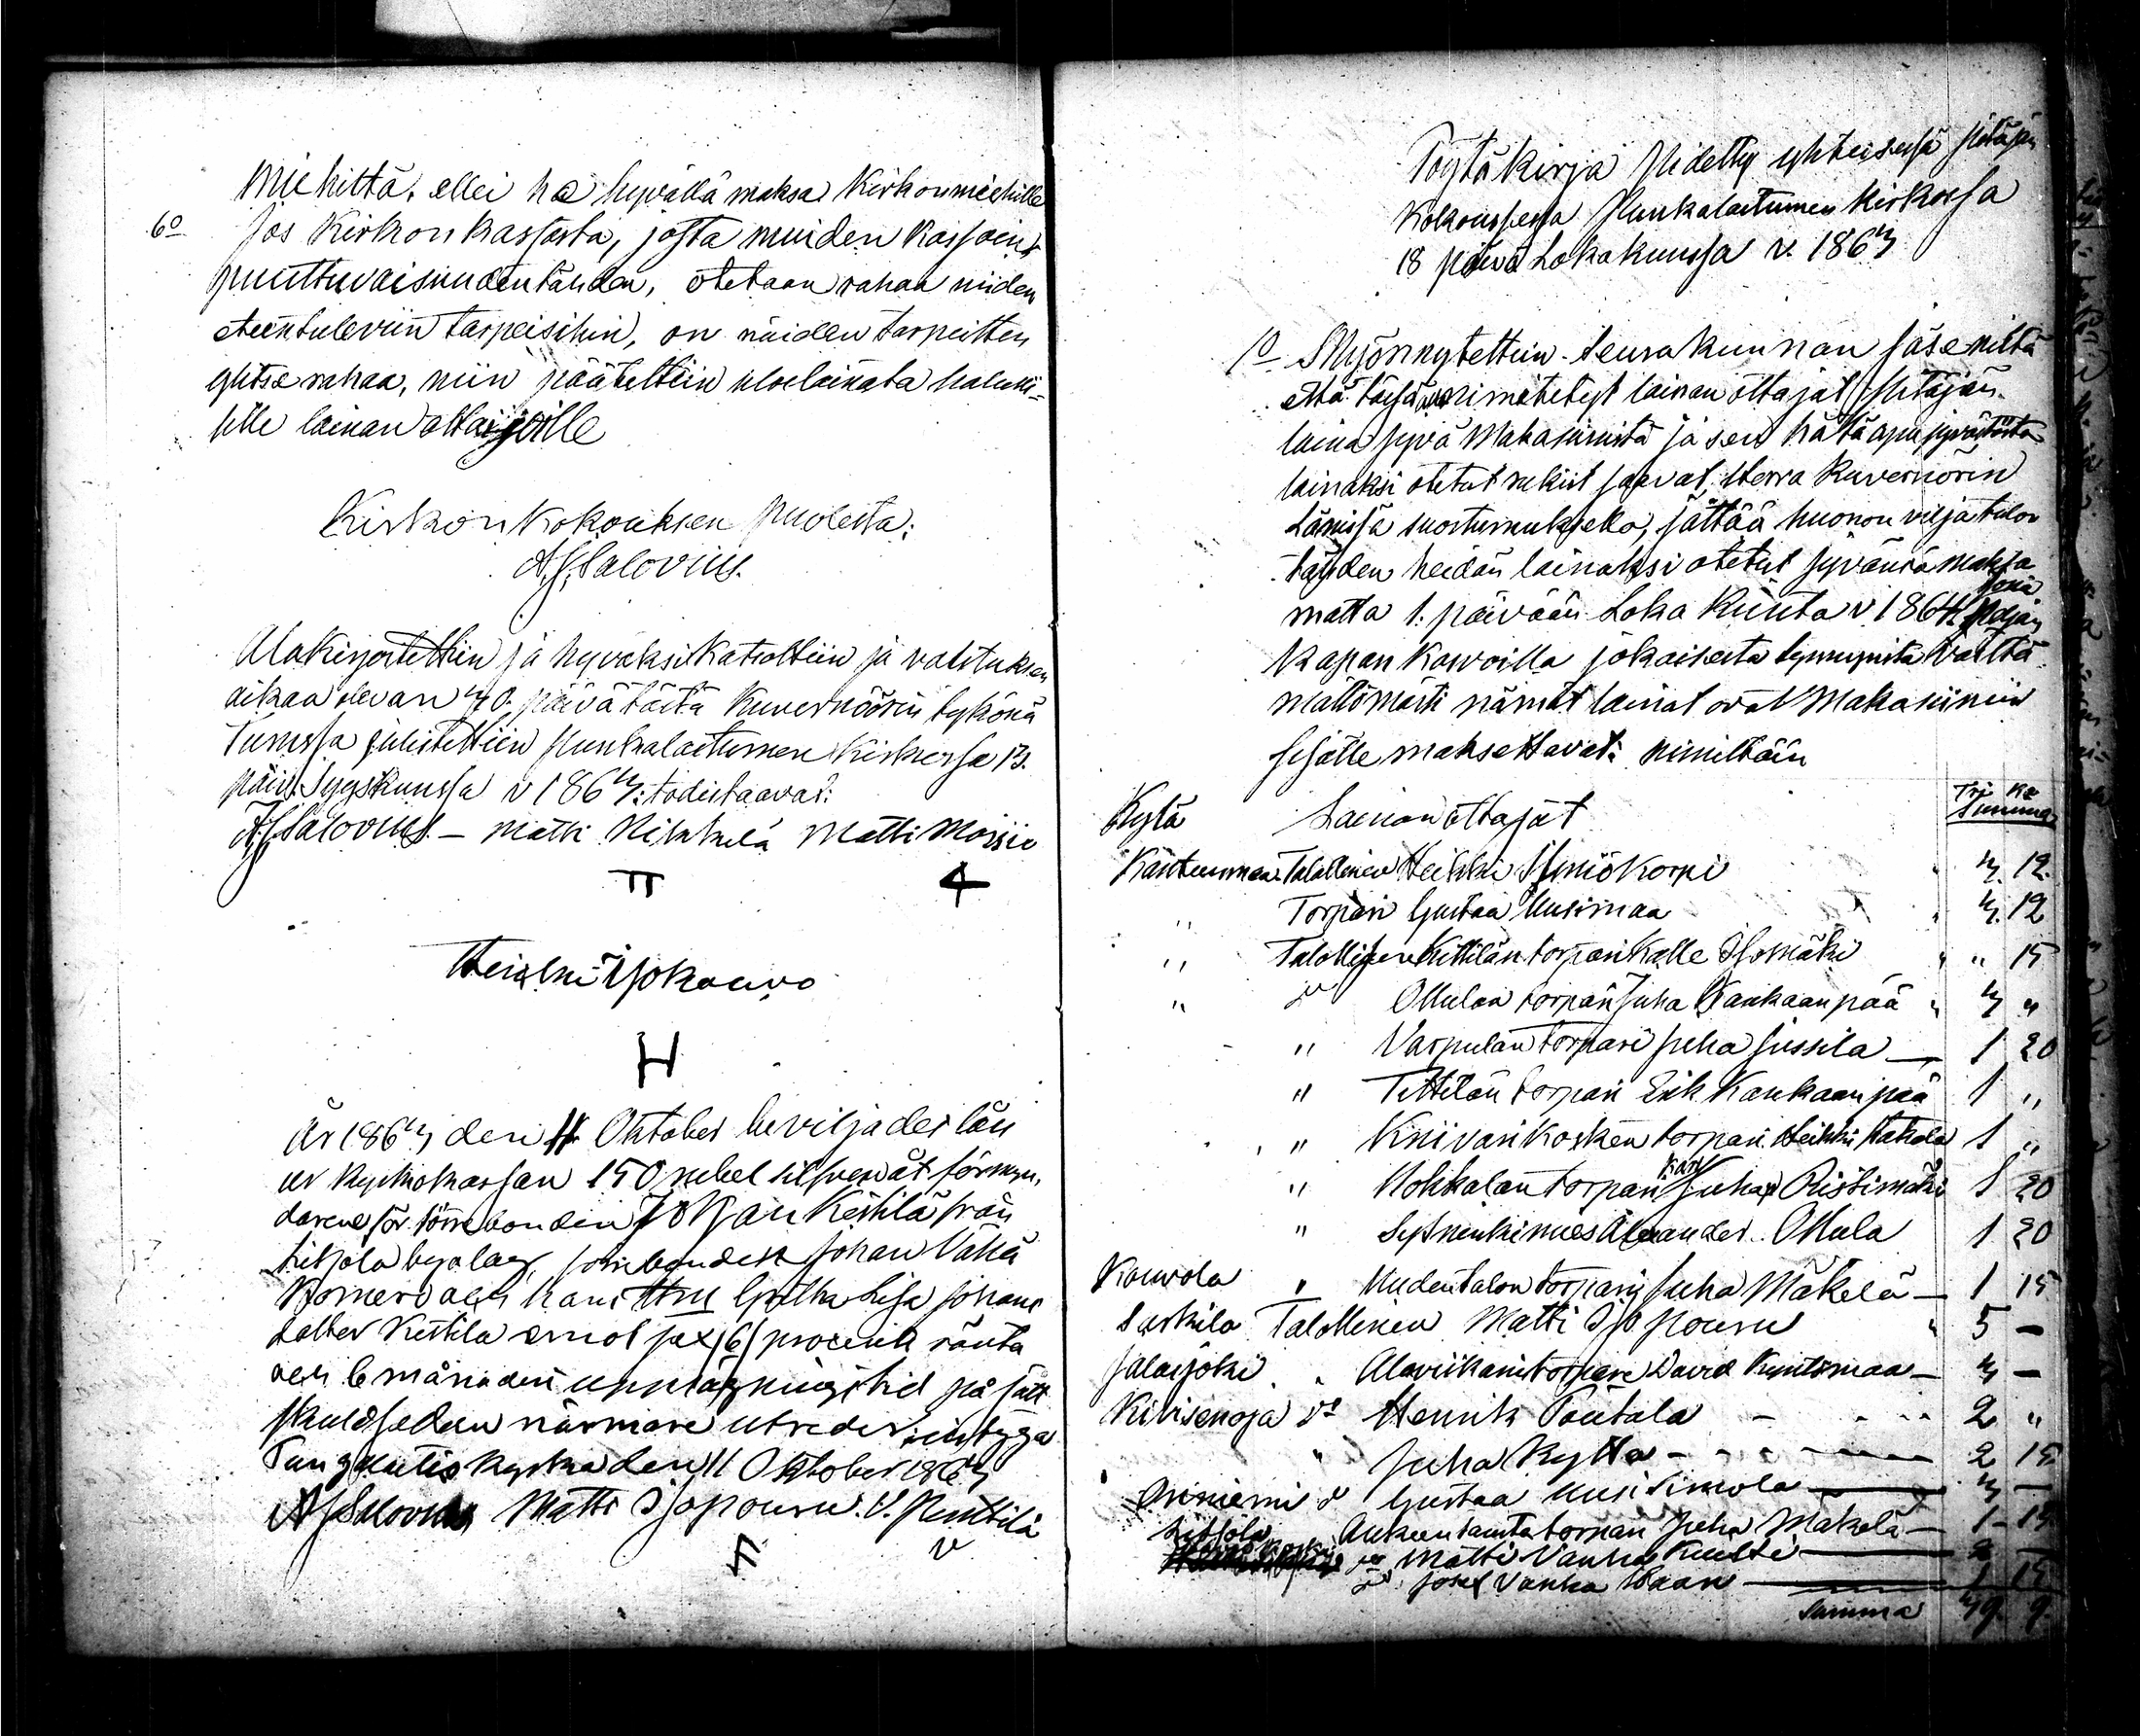 Miehittä, ellei he hyvällä maksa Kirkonmiehille
6o Jos Kirkon kassasta, josta muiden kassain
puuttuvaisuuden tähden, otetaan rahaa niiden
eteentuleviin tarpeisihin, on näiden tarpeitten
ylitse rahaa, niin päätettiin uloslainata halulli-
sille lainan ottajille
Kirkon Kokouksen puolesta:
A.J. Salovius.
Alakirjoitettiin ja hyväksi katsottiin ja valituksen
aikaa olevan 30. päivä tästä Kuvernöörin tykönä
Turussa julistettiin Punkalaitumen Kirkossa 13.
päiv. Syyskuussa v 1863: todistaavat:
A.J. Salovius. – Matti Matti Moisio
Heikki Isokouvo
H
År 1863 den 11 Oktober beviljades lån
ur kyrkokassan 150 rubel silfver åt förmyn-
darene för bonden Johan Kestilä från
Liitsola by samt bonden Johan Vähä
och hans Hustru Gretha Lisa Johans
dotter Kestilä emot sex /6/ procents ränta
och 6 månaders uppsägningstid på sätt
skuldsedlen närmare utreder; intyga
Pungalaitio kyrka den 11 Oktober 1863
A J Salovius Matti Isopouru. V. Penttilä
Pöytäkirja Pidetty yhteisessä pitäjän
Kokouksessa Punkalaitumen Kirkossa
18 päivä Lokakuussa v. 1863
1o Myönnytettiin Seurakunnan jäseniltä
että tässä nimitetyt lainan ottajat Pitäjän
laina jyvä Makasiinista ja sen hätäapu jyvästöstä
lainaksi otetut rukiit saavat, Herra Kuvernörin
Läänissä suostumuksella, jättää huonon viljatulon
tähden heidän lainaksi otetut jyvänsä maksa
matta 1. päivään Loka Kuuta v 1864
kapan kasvoilla jokaisesta tynnyristä vältä
mättömästi nämät lainat ovat Makasiiniin
jesälle maksettavat: nimittäin
Kylä Lainan ottajat Tri Ka Summa
Kanteenmaa Talollinen Heikki Korpi " 3. 12.
" Torpari Gustaa Uusimaa " 3. 12
" Talollisen Kittilän torpari Kalle Isomäki " " 15
" do Ollulan torpari Juha Kankaanpää " 3 "
" Varpulan torpari Juha Jussila — 1 20
" Tittilän torpari Erik Kankaanpää 1 "
" Kniivarikosken torpari Heikki Hakala 1 "
" Kohkalan torpari Juha Ristimäki 1 20
" Alexander Ollula 1 20
Kouvola " Uudentalon torpari Juha Mäkelä — 1 15
Sarkila Talollinen Matti Isopouru " 5 —
Jalasjoki " torpari David — 3 —
Kivisenoja do Henrik Töntälä – 2 "
" Juha Kyttä – – 2 15
Oriniemi do Gustaa Uusi Simola — 3 —
Liitsola torpari Juha Mäkelä — 1 – 15
do Matti Vanha — 2 —
do Josef Vanha — 1 15
Summa 39. 9.